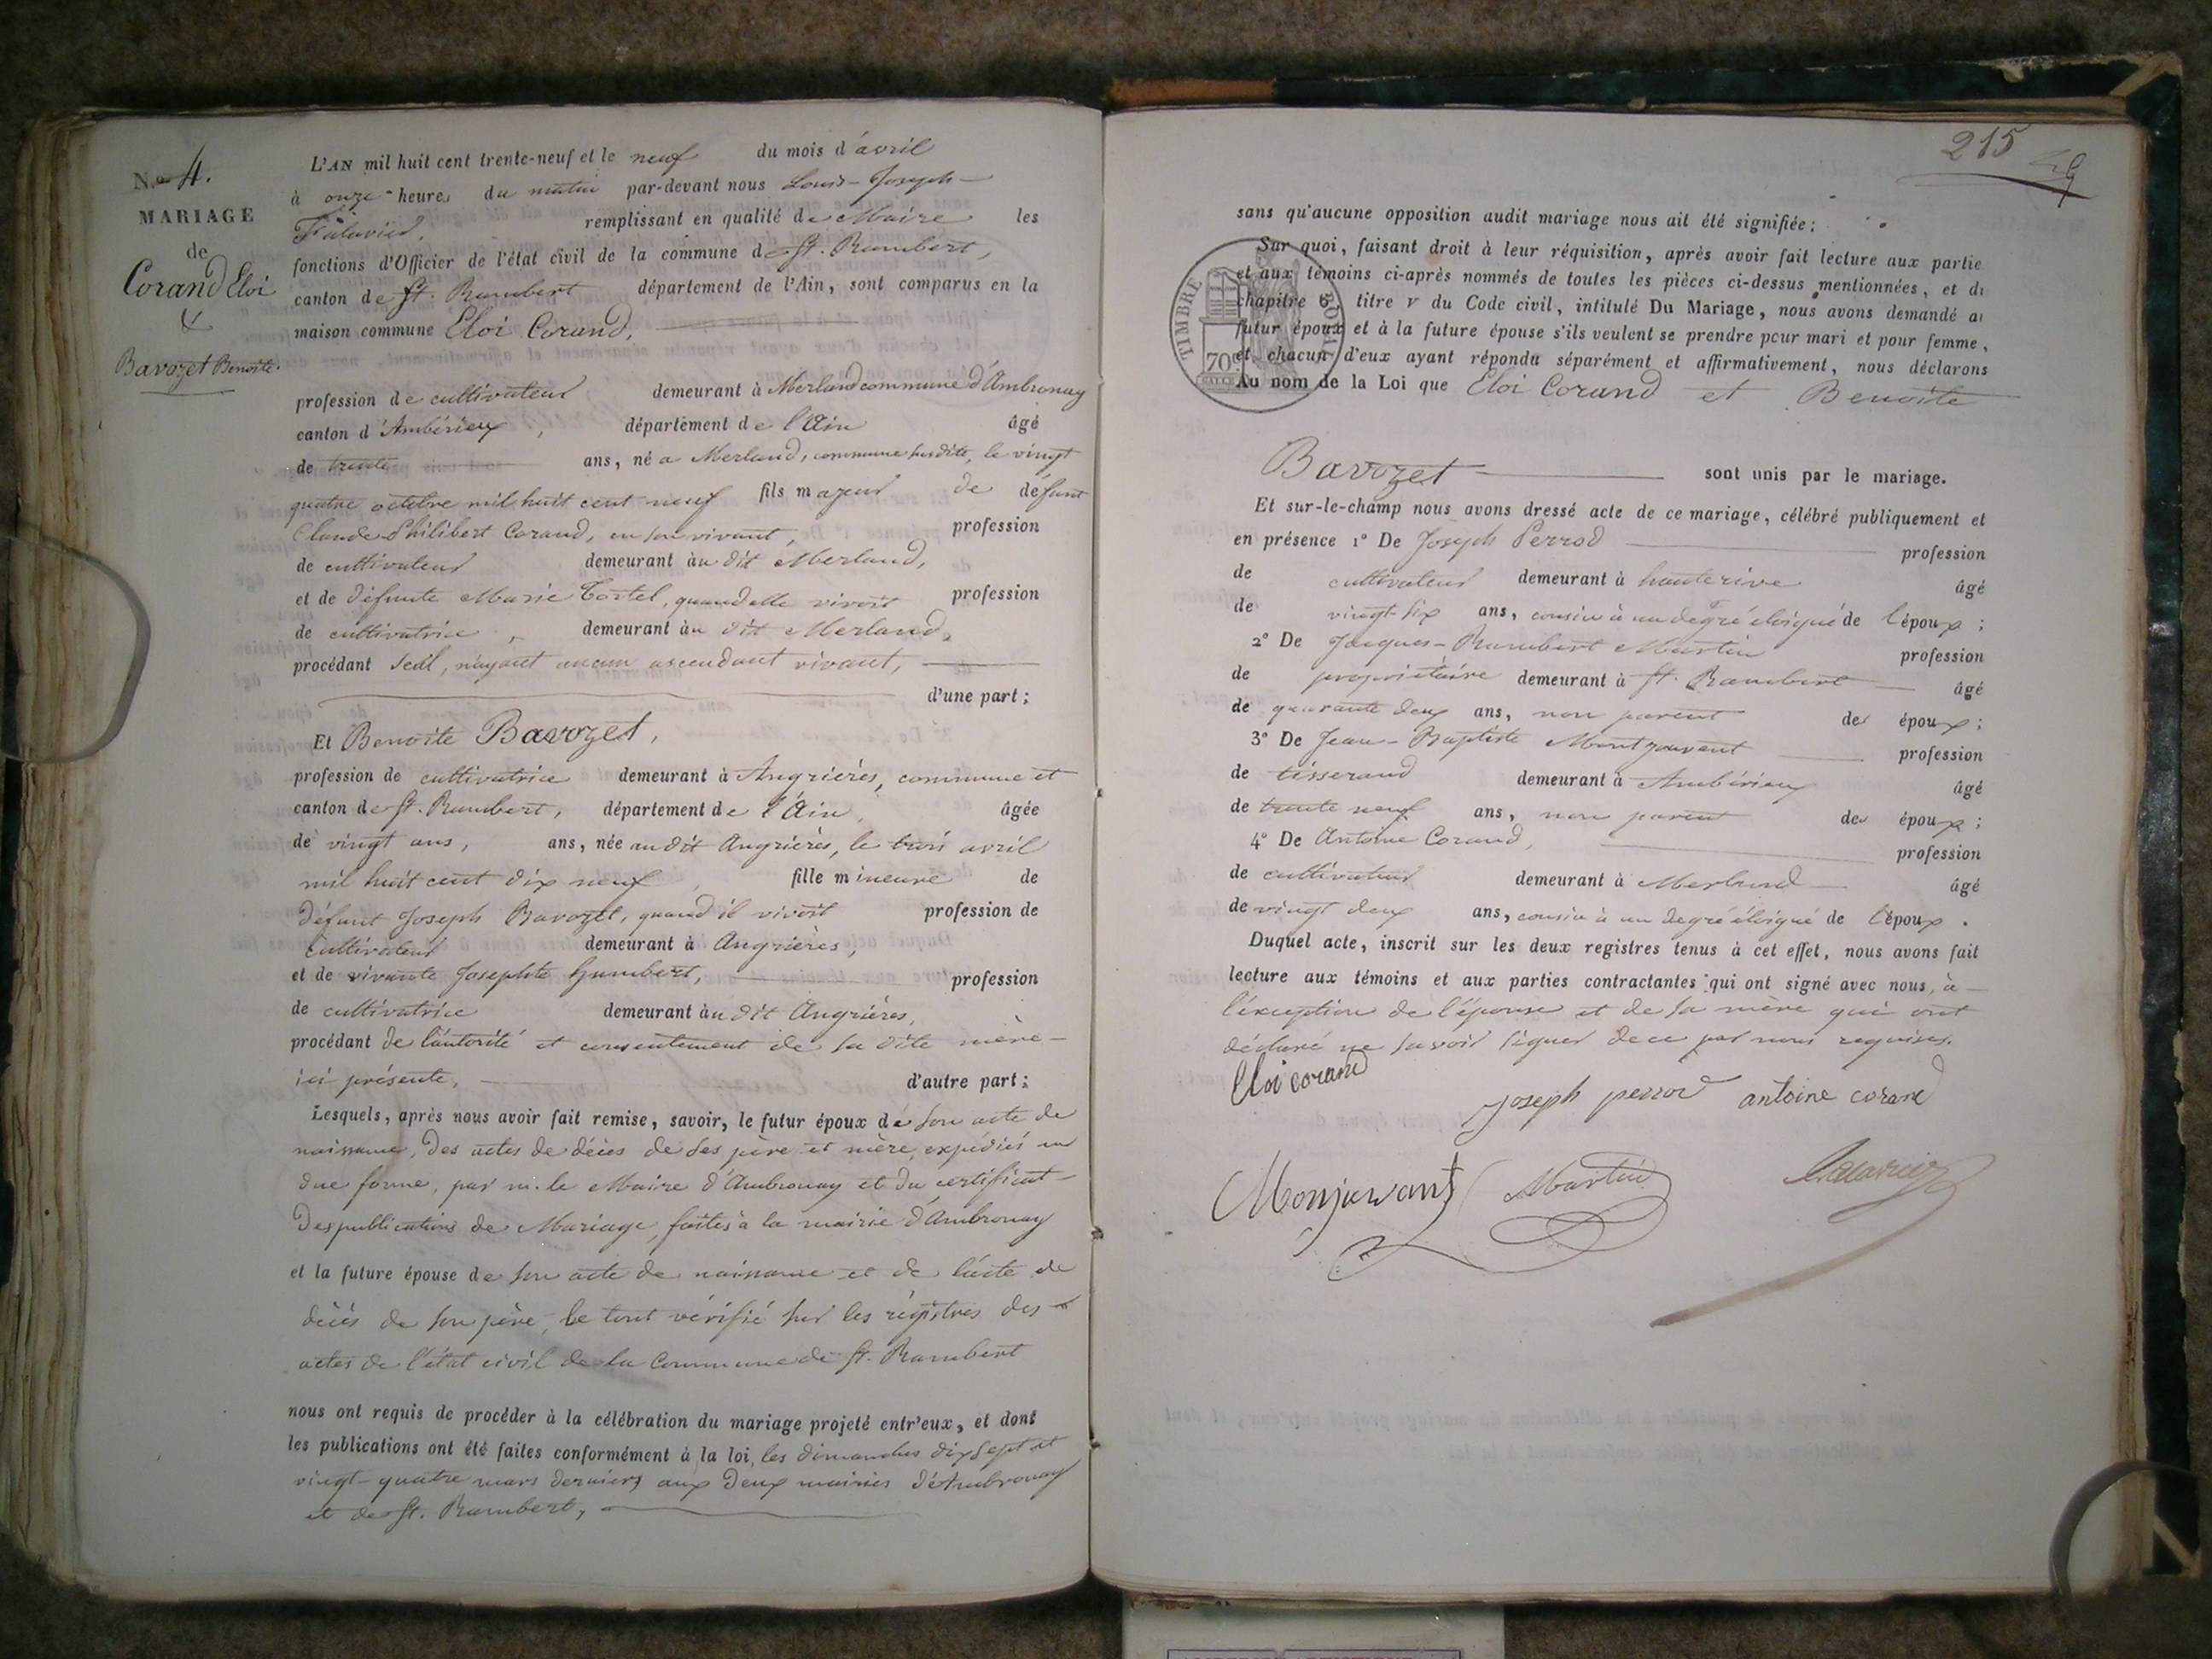 N.o 4.
MARIAGE
de
Corand Eloi
&
Bavozet Benoite.
L'AN mil huit cent trente-neuf et le neuf du mois d'avril
à onze heures du matin par-devant nous Louis-Joseph-
remplissant en qualité de Maire les
fonctions d'Officier de l'état civil de la commune de St. Rambert,
canton de St. Rambert département de l'Ain, sont comparus en la
maison commune Eloi Corand,
profession de cultivateur demeurant à Merland commune d'Ambronay
canton d'Ambérieux, département de l'Ain âgé
de trente ans, né a Merland, commune susdite, le vingt
quatre octobre mil huit cent neuf fils majeur de défunt
Claude Philibert Corand, en son vivant, profession
de cultivateur demeurant au dit Merland,
et de défunte Marie Tortel, quand elle vivoit profession
de cultivatrice, demeurant au dit Merland,
procédant seul, n'ayant aucun ascendant vivant,
d'une part;
Et Benoite Bavozet,
profession de cultivatrice demeurant à Angrières, commune et
canton de St. Rambert, département de l'Ain, âgée
de vingt ans, ans, née au dit Angrières, le trois avril
mil huit cent dix neuf, fille mineure de
défunt Joseph Bavozet, quand il vivoit profession de
cultivateur demeurant à Angrières,
et de vivante Josephte Humbert, profession
de cultivatrice demeurant au dit Angrières,
procédant de l'autorité et consentement de sa dite mère-
ici présente, d'autre part;
Lesquels, après nous avoir fait remise, savoir, le futur époux de son acte de
naissance, des actes de décès de ses père et mère, expédiés en
due forme, par m. le Maire d'Ambronay et du certificat-
des publications de Mariage, faites à la mairie d'Ambronay
et la future épouse de son acte de naissance et de l'acte de
décès de son père, le tout vérifié sur les régistres des
actes de l'état civil de la Commune de St. Rambert
nous ont requis de procéder à la célébration du mariage projeté entr'eux, et dont
les publications ont été faites conformément à la loi, les dimanches dix sept et
vingt-quatre mars derniers aux deux mairies d'Ambronay
et de St. Rambert,
215
sans qu'aucune opposition audit mariage nous ait été signifiée;
Sur quoi, faisant droit à leur réquisition, après avoir fait lecture aux partie
et aux témoins ci-après nommés de toutes les pièces ci-dessus mentionnées, et du
chapitre 6, titre V du Code civil, intitulé Du Mariage, nous avons demandé au
futur époux et à la future épouse s'ils veulent se prendre pour mari et pour femme,
et chacun d'eux ayant répondu séparément et affirmativement, nous déclarons
Au nom de la Loi que Eloi Corand et Benoite
TIMBRE ROYAL
70c
Bavozet sont unis par le mariage.
Et sur-le-champ nous avons dressé acte de ce mariage, célébré publiquement et
en présence 1° De Joseph Perrod profession
de cultivateur demeurant à hauterive âgé
de vingt-six ans, cousin à un degré éloigné de l'époux;
2° De Jacques-Rambert Martin profession
de propriétaire demeurant à St. Rambert âgé
de quarante deux ans, non parent des époux;
3° De Jean-Baptiste Montjouvent profession
de tisserand demeurant à Ambérieux âgé
de trente neuf ans, non parent des époux;
4° De Antoine Corand, profession
de cultivateur demeurant à Merland âgé
de vingt deux ans, cousin à un degré éloigné de l'époux.
Duquel acte, inscrit sur les deux registres tenus à cet effet, nous avons fait
lecture aux témoins et aux parties contractantes qui ont signé avec nous, à-
l'exception de l'épouse et de sa mère qui ont
déclaré ne savoir signer de ce par nous requises.
Eloi corand
Joseph perrod antoine corand
Monjuvant Martin